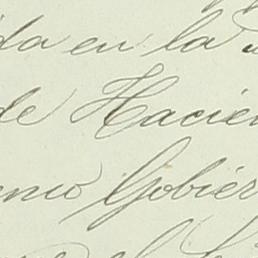 da en la
de Hacien
eno Gobier